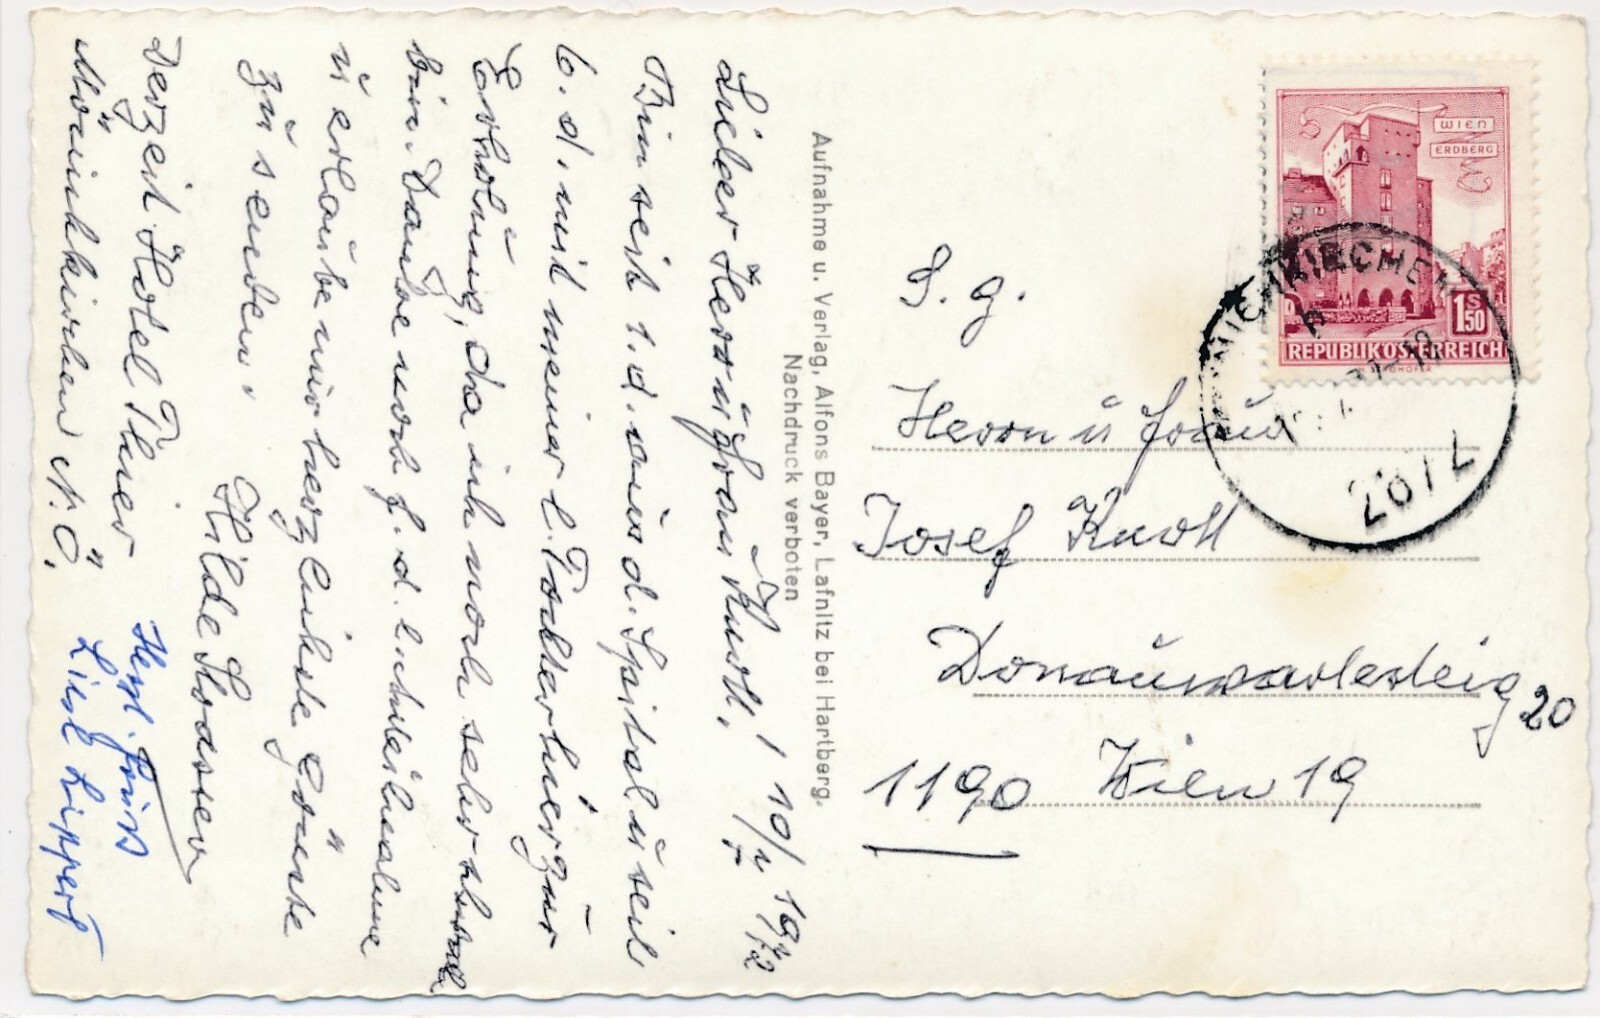 10/7 1972
Lieber Herr u Frau Knoll,
Bin seit 1. d. aus d. Spital u seit
6. d. mit meiner l. Tochter hier zur
Erholung, da ich noch sehr schwach
bin. Danke noch f. d. l. Anteilnahme
u erlaube mir herzlichste Grüsse
zu senden.
Hilde
Derzeit Hotel Thier
Mönichkirchen N.Ö.
Herzl. Grüss
Liesl Lippert
Aufnahme u. Verlag, Alfons Bayer, Lafnitz bei Hartberg.
Nachdruck verboten
WIEN
ERDBERG
1 S 50
REPUBLIK ÖSTERREICH
NICHKIRCHEN
2872
Herrn u Frau
Josef Knoll
Donauwartesteig 20
1190 Wien 19